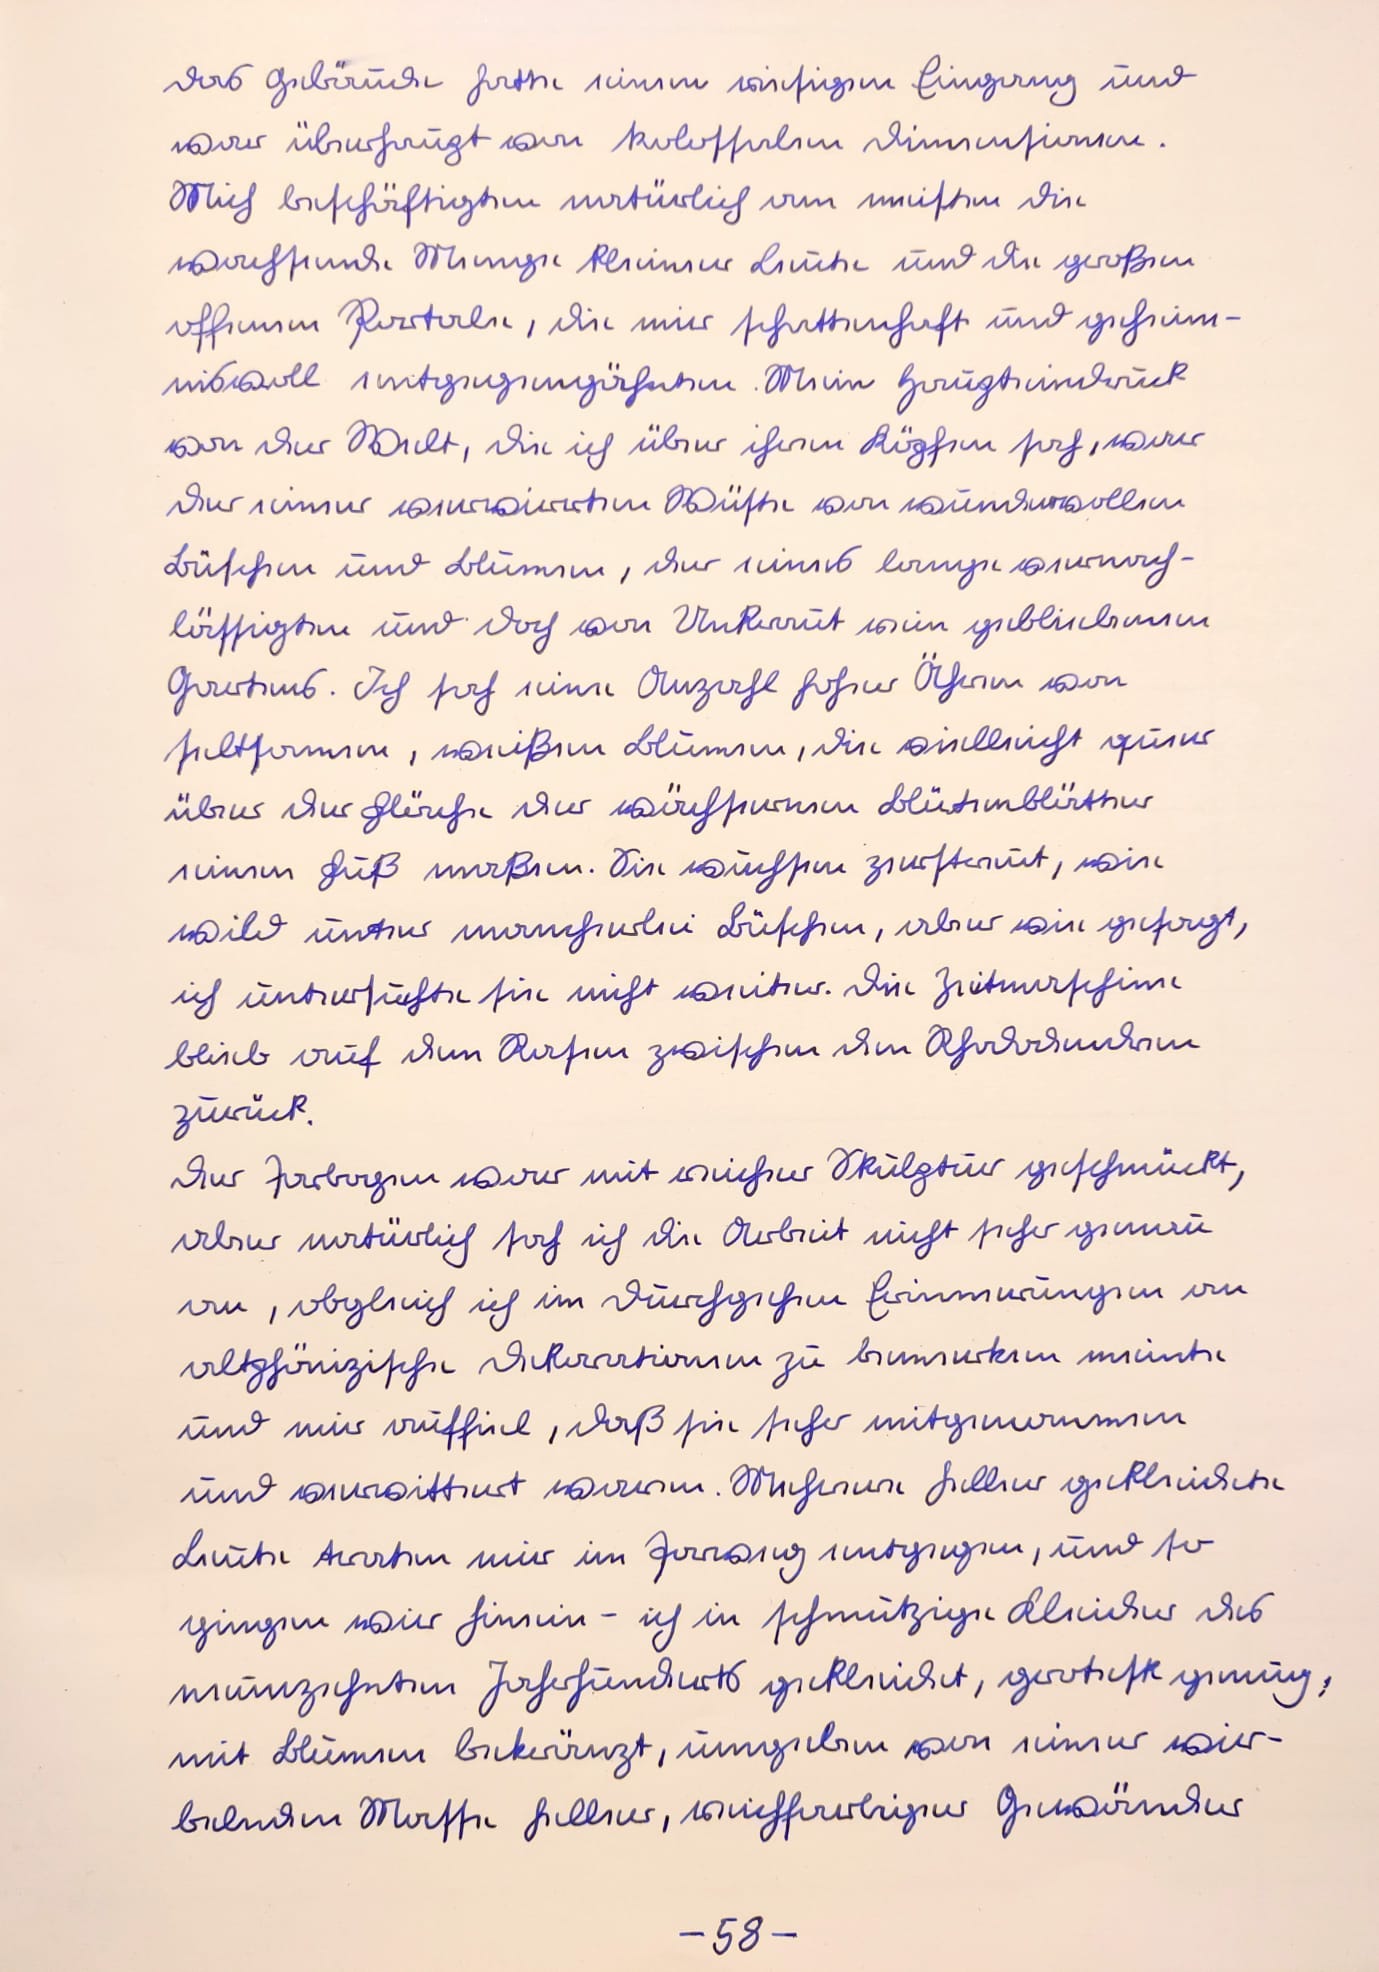 Das Gebäude hatte einen riesigen Eingang und
war überhaupt von kolossalen Dimensionen.
Mich beschäftigten natürlich am meisten die
wachsende Menge kleiner Leute und die großen
offenen Portale, die mir schattenhaft und geheim-
nisvoll entgegengähnten. Mein Haupteindruck
von der Welt, die ich über ihren Köpfen sah, war
der einer verwirrten Wüste von wundervollen
Büschen und Blumen, der eines lange vernach-
lässigten und doch von Unkraut rein gebliebenen
Gartens. Ich sah eine Anzahl hoher Ähren von
seltsamen, weißen Blumen, die vielleicht quer
über der Fläche der wächsernen Blütenblätter
einen Fuß maßen. Sie wuchsen zerstreut, wie
wild unter mancherlei Büschen, aber wie gesagt,
ich untersuchte sie nicht weiter. Die Zeitmaschine
blieb auf dem Rasen zwischen den Rhododendren
zurück.
Der Torbogen war mit reicher Skulptur geschmückt,
aber natürlich sah ich die Arbeit nicht sehr genau
an, obgleich ich im Durchgehen Erinnerungen an
altphönizische Dekorationen zu bemerken meinte
und mir auffiel, daß sie sehr mitgenommen
und verwittert waren. Mehrere heller gekleidete
Leute traten mir im Torweg entgegen, und so
gingen wir hinein - ich in schmutzige Kleider des
neunzehnten Jahrhunderts gekleidet, grotesk genug,
mit Blumen bekränzt, umgeben von einer wir-
belnden Masse heller, weichfarbiger Gewänder
-58-